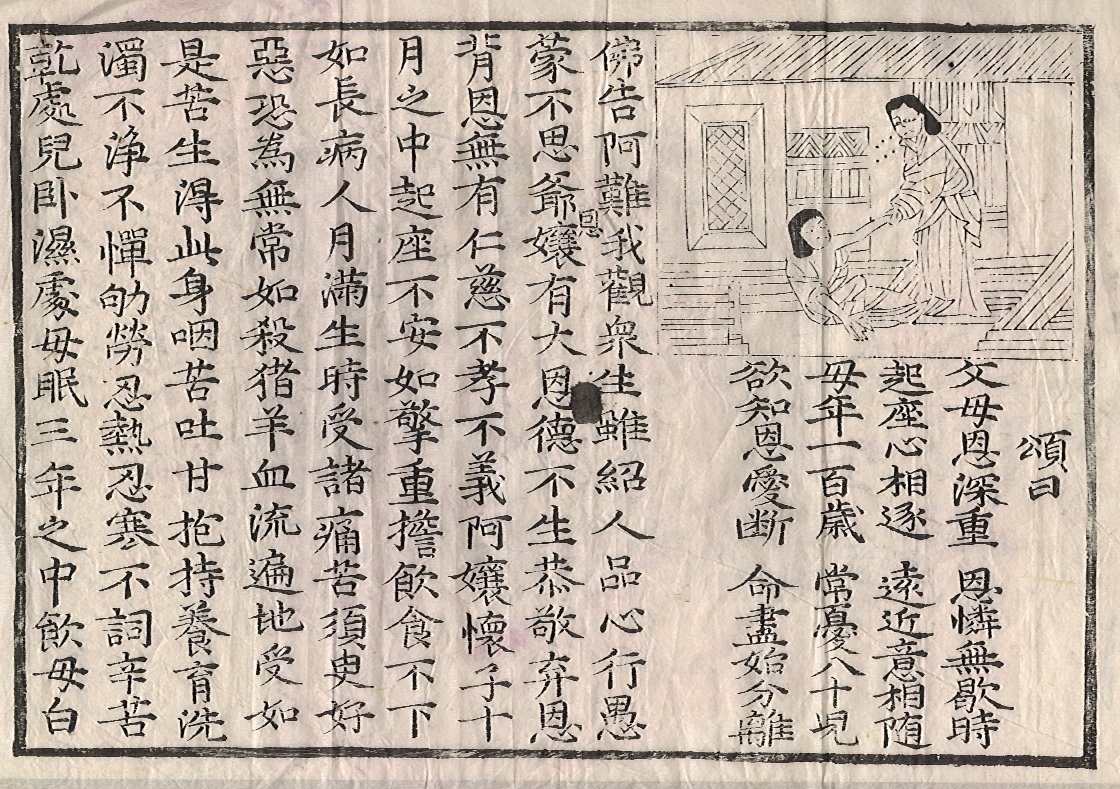 頌曰
父母恩深重 恩憐無歇時
起座心相逐 遠近意相随
母年一百歲 常憂八十児
欲知恩愛断 命盡始分離
佛告阿難我觀衆生雖紹人品心行愚
蒙不思爺嬢恩有大恩德不生恭敬弃恩
背恩無有仁慈不孝不義阿孃懷子十
月之中起座不安如擎重擔飲食不下
如長病人月滿生時受諸痛苦須臾好
惡恐為無常如殺猪羊血流遍地受如
是苦生淂此身咽苦吐甘抱持養育洗
濁不淨不憚劬勞忍熱忍寒不詞辛苦
乾處兒卧濕處母眠三年之中飲母白